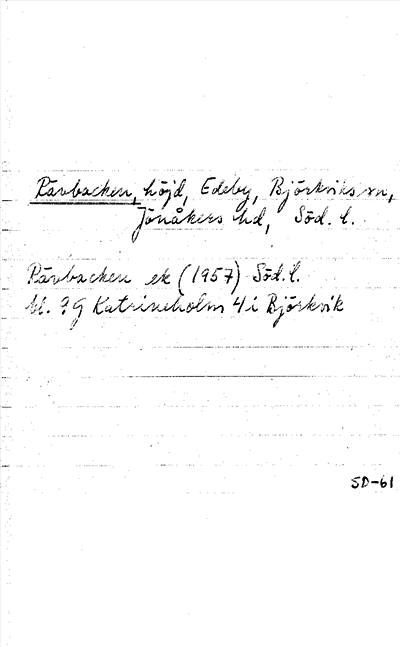 Rävbacken, höjd, Edeby, Björkviks sn,
Jönåkers hd, Söd. l.
Rävbacken ek (1957) Söd. l.
bl. 9G Katrineholm 4i Björkvik
SD-61